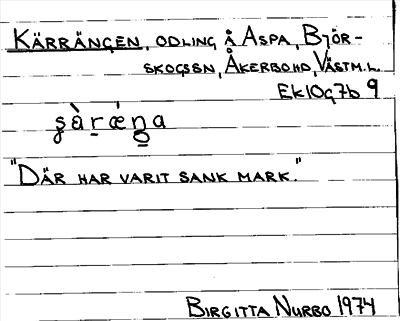 KÄRRÄNGEN, ODLING Å ASPA, BJÖR-
SKOGSSN, ÅKERBOHD, VÄSTM.L.
EK10g7b 9
"DÄR HAR VARIT SANK MARK."
BIRGITTA NURBO 1974